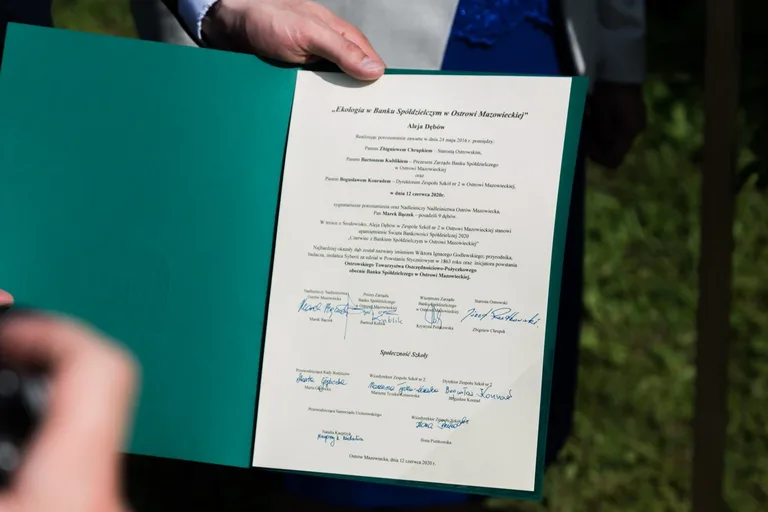 „Ekologia w Banku Spółdzielczym w Ostrowi Mazowieckiej”
Aleja Dębów
Realizując porozumienie zawarte w dniu 24 maja 2016 r. pomiędzy:
Panem Zbigniewem Chrupkiem – Starostą Ostrowskim,
Panem Bartoszem Kublikiem – Prezesem Zarządu Banku Spółdzielczego
w Ostrowi Mazowieckiej
oraz
Panem Bogusławem Konradem – Dyrektorem Zespołu Szkół nr 2 w Ostrowi Mazowieckiej,
w dniu 12 czerwca 2020r.
sygnatariusze porozumienia oraz Nadleśniczy Nadleśnictwa Ostrów Mazowiecka,
Pan Marek Bączek – posadzili 9 dębów.
W trosce o środowisko, Aleja Dębów w Zespole Szkół nr 2 w Ostrowi Mazowieckiej stanowi
upamiętnienie Święta Bankowości Spółdzielczej 2020
„Czerwiec z Bankiem Spółdzielczym w Ostrowi Mazowieckiej”
Najbardziej okazały dąb został nazwany imieniem Wiktora Ignacego Godlewskiego, przyrodnika,
badacza, zesłańca Syberii za udział w Powstaniu Styczniowym w 1863 roku oraz inicjatora powstania
Ostrowskiego Towarzystwa Oszczędnościowo-Pożyczkowego
obecnie Banku Spółdzielczego w Ostrowi Mazowieckiej.
Nadleśniczy Nadleśnictwa Prezes Zarządu Wiceprezes Zarządu Starosta Ostrowski
Ostrów Mazowiecka Banku Spółdzielczego Banku Spółdzielczego
w Ostrowi Mazowieckiej w Ostrowi Mazowieckiej
Marek Bączek Bartosz Kublik Krystyna Zbigniew Chrupek
Społeczność Szkoły
Przewodnicząca Rady Rodziców Wicedyrektor Zespołu Szkół nr 2 Dyrektor Zespołu Szkół nr 2
Bogusław Konrad
Marzena Bogusław Konrad
Przewodnicząca Samorządu Uczniowskiego Wicedyrektor Zespołu Szkół nr 2
Natalia
Ostrów Mazowiecka, dnia 12 czerwca 2020 r.